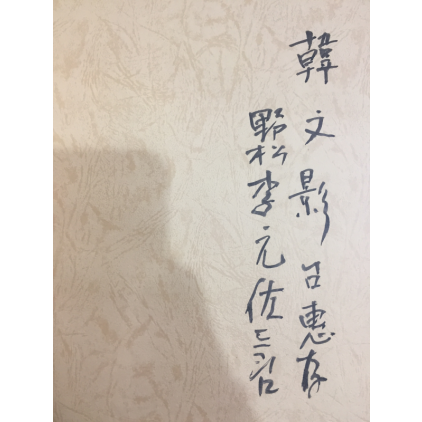 韓文影 呂惠存
野松李元佐 드림